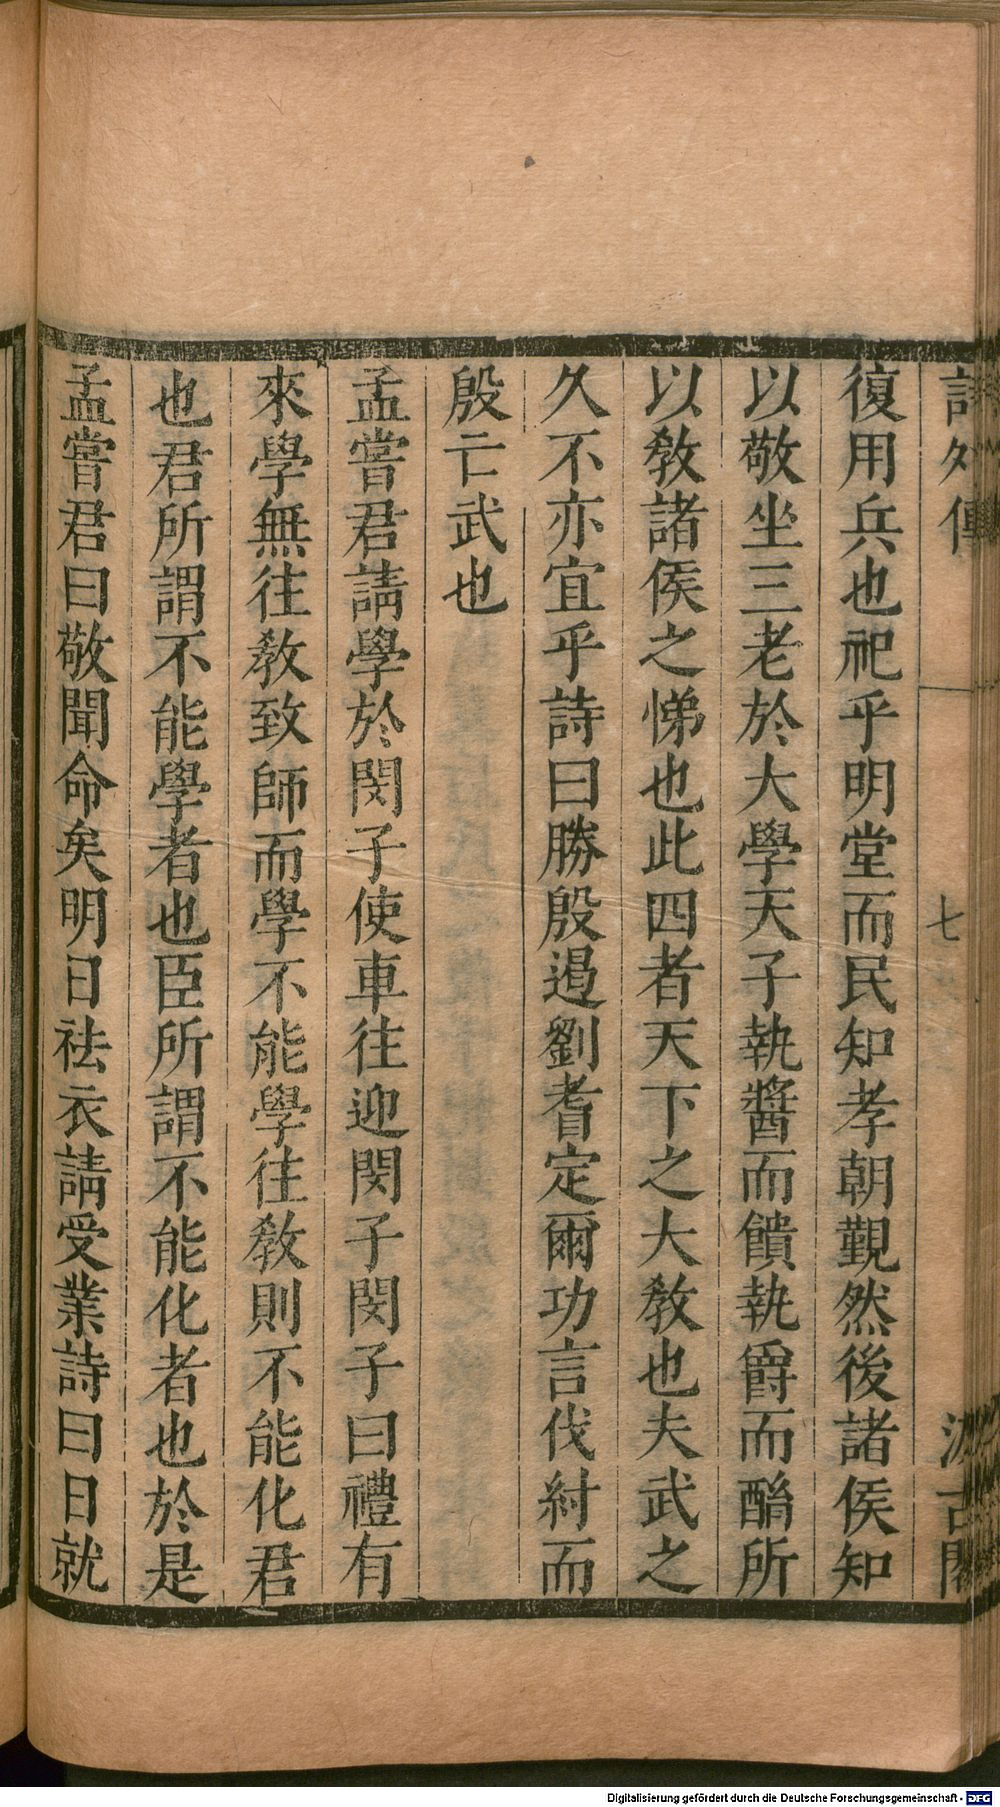 詩外傳 七 汲古閣
復用兵也祀乎明堂而民知孝朝覲然後諸侯知
以敬坐三老於大學天子執醬而饋執爵而酳所
以教諸侯之悌也此四者天下之大教也夫武之
久不亦宜乎詩曰勝殷遏劉耆定爾功言伐紂而
殷亡武也
孟嘗君請學於閔子使車往迎閔子閔子曰禮有
來學無往教致師而學不能學往教則不能化君
也君所謂不能學者也臣所謂不能化者也於是
孟嘗君曰敬聞命矣明日袪衣請受業詩曰日就
Digitalisierung gefördert durch die Deutsche Forschungsgemeinschaft - DFG